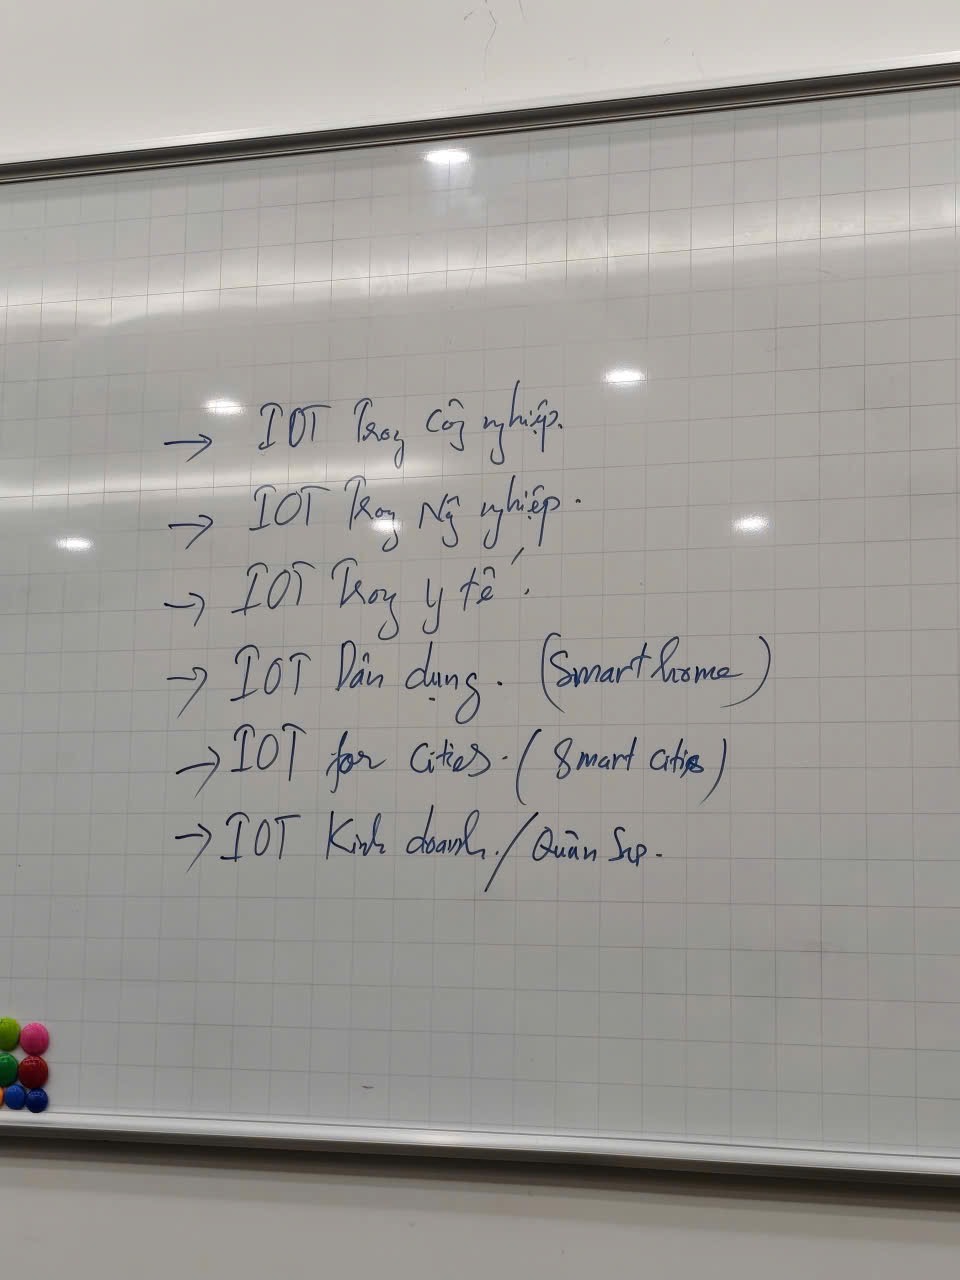 → IOT Trong Công nghiệp.
→ IOT Trong Nông nghiệp.
→ IOT Trong y tế.
→ IOT Dân dụng. (Smart home)
→ IOT for cities. (Smart cities)
→ IOT Kinh doanh. / Quân Sự.